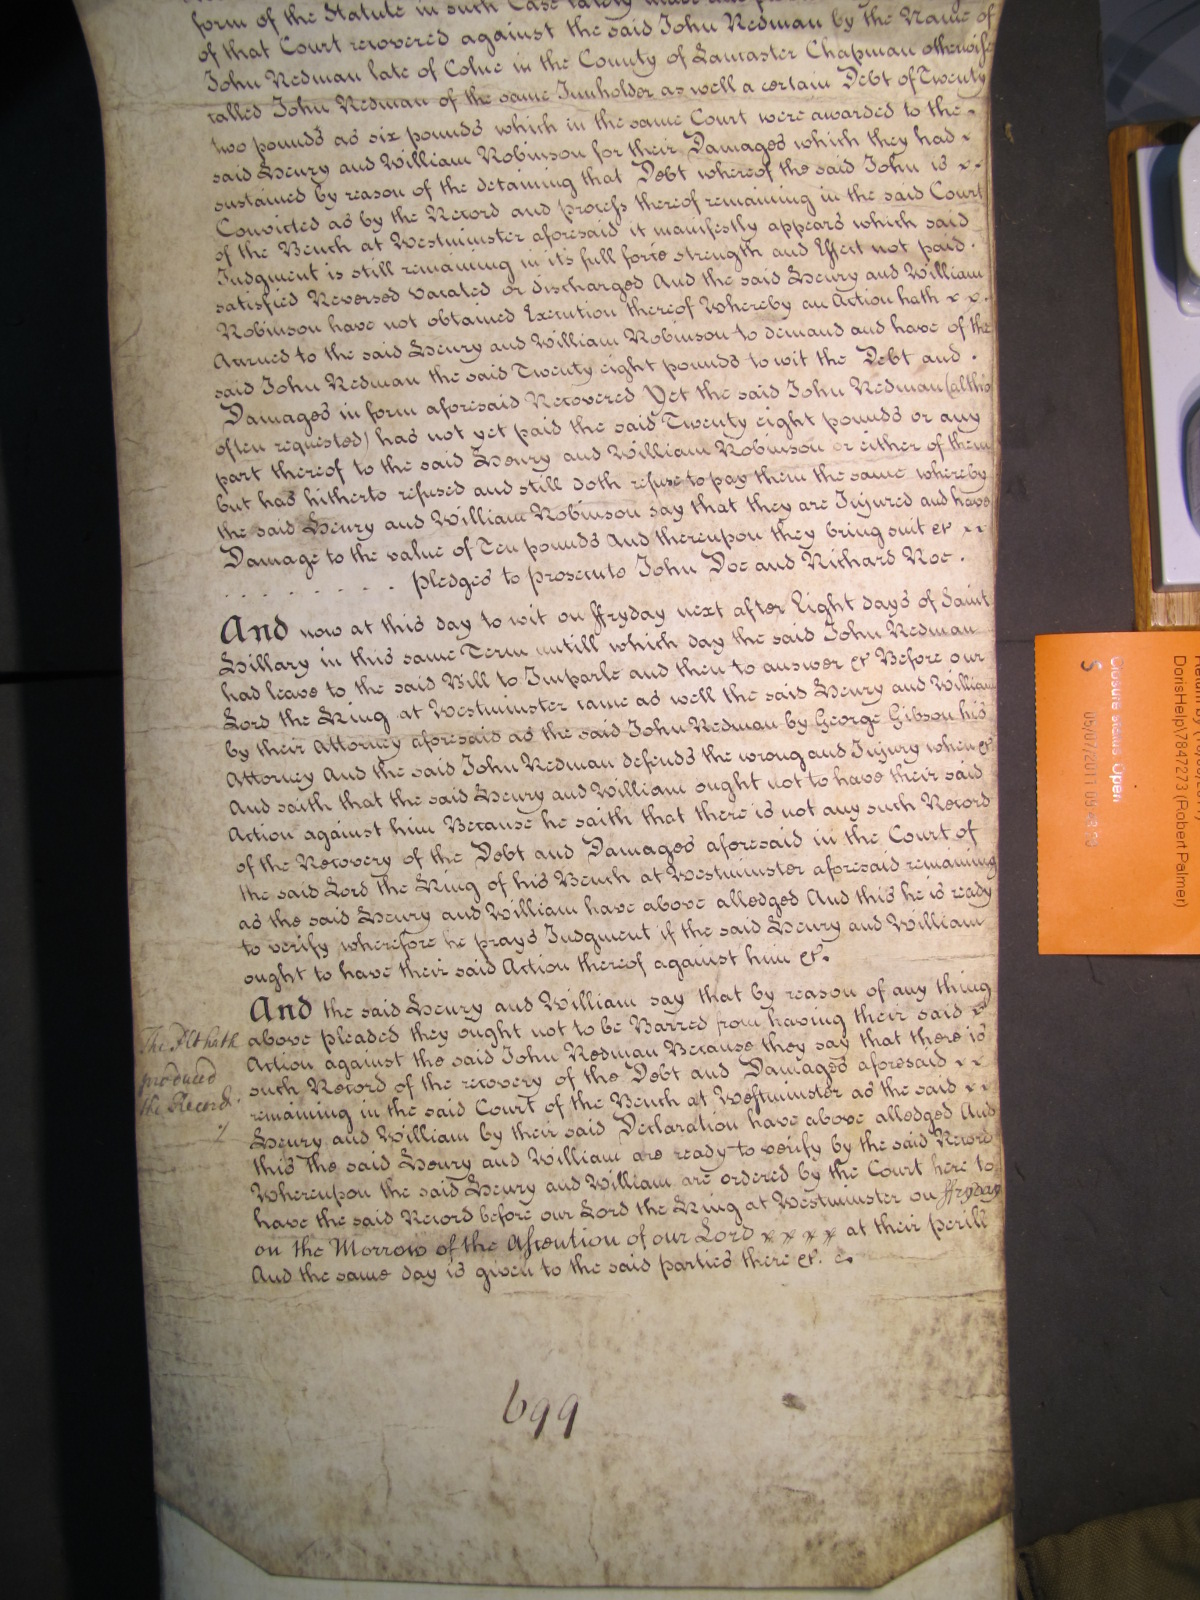 form of the Statute in such Case lately made and
of that Court recovered against the said John Redman by the Name of
John Redman late of Colne in the County of Lancaster Chapman otherwise
called John Redman of the same Innholder as well a certain Debt of Twenty
two pounds as six pounds which in the same Court were awarded to the -
said Henry and William Robinson for their Damages which they had x
sustained by reason of the detaining that Debt whereof the said John is x x
Convicted as by the Record and process thereof remaining in the said Court
of the Bench at Westminster aforesaid it manifestly appears which said
Judgment is still remaining in its full force strength and Effect not paid -
satisfied Reversed vacated or discharged And the said Henry and William
Robinson have not obtained Execution thereof Whereby an Action hath x x
Accrued to the said Henry and William Robinson to demand and have of the
said John Redman the said Twenty eight pounds to wit the Debt and .
Damages in form aforesaid Recovered Yet the said John Redman (altho
often requested) has not yet paid the said Twenty eight pounds or any
part thereof to the said Henry and William Robinson or either of them
but has hitherto refused and still doth refuse to pay them the same whereby
the said Henry and William Robinson say that they are Injured and have
Damage to the value of Ten pounds And thereupon they bring suit &c x x
. . . . . . . . . pledges to prosecute John Doe and Richard Roe .
And now at this day to wit on ffryday next after Eight days of Saint
Hillary in this same Term untill which day the said John Redman
had leave to the said Bill to Imparle and then to answer &c Before our
Lord the King at Westminster came as well the said Henry and William
by their Attorney aforesaid as the said John Redman by George Gibson his
Attorney And the said John Redman defends the wrong and Injury when &c
And saith that the said Henry and William ought not to have their said
Action against him Because he saith that there is not any such Record
of the Recovery of the Debt and Damages aforesaid in the Court of
the said Lord the King of his Bench at Westminster aforesaid remaining
as the said Henry and William have above alledged And this he is ready
to verify wherefore he prays Judgment if the said Henry and William
ought to have their said Action thereof against him &c.
And the said Henry and William say that by reason of any thing
above pleaded they ought not to be Barred from having their said x
Action against the said John Redman Because they say that there is
such Record of the recovery of the Debt and Damages aforesaid x x
remaining in the said Court of the Bench at Westminster as the said x x
Henry and William by their said Declaration have above alledged And
this the said Henry and William are ready to verify by the said Record
Whereupon the said Henry and William are ordered by the Court here to
have the said Record before our Lord the King at Westminster on ffryday
on the Morrow of the Ascention of our Lord x x x x at their perill
And the same day is given to the said parties there &c. &c.
The Plt hath
produced
the Record.
699
Closure status Open
S 05/07/2011 09:28:20
DorisHelp\7847273 (Robert Palmer)